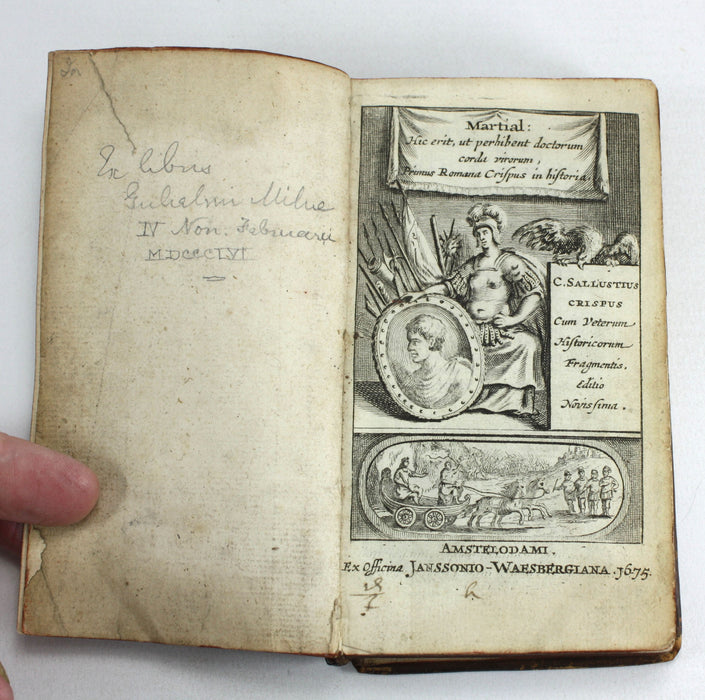 Ex libris
Gulielmi Milne
IV Non. Februarii
MDCCCLVI
Martial:
Hic erit, ut perhibent doctorum
corda virorum,
Primus Romana Crispus in historia.
C. SALLUSTIUS
CRISPUS
Cum Veterum
Historicorum
Fragmentis.
Editio
Novissima.
AMSTELODAMI.
Ex Officina JANSSONIO-WAESBERGIANA. 1675.